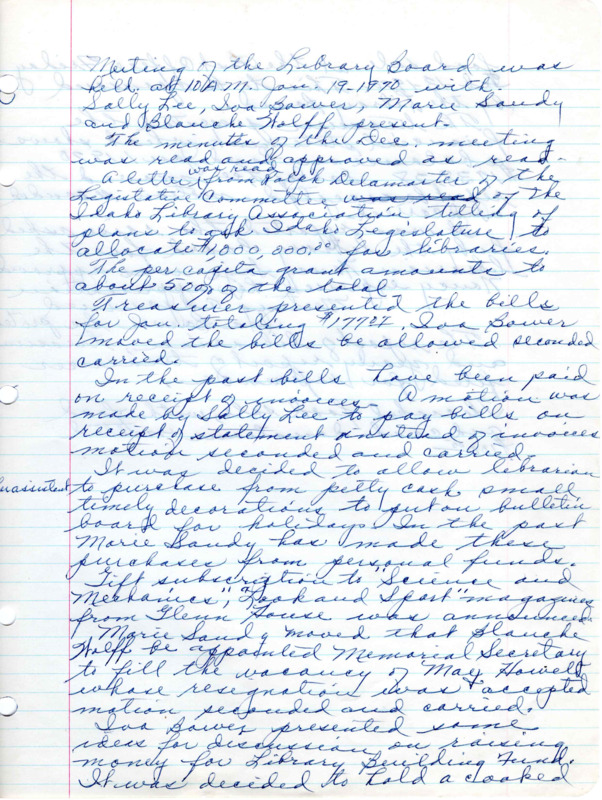 Meeting of the Library Board was
held at 10 A.M. Jan. 19-1970 with
Sally Lee, Iva Bower, Marie Gandy
and Blanche Wolff present.
The minutes of the Dec. meeting
was read and approved as read.
was read
A letter from Delamarter of the
Legistative Committee was read of the
Idaho Library Association telling of
plans to ask Idaho Legislature to
allocate $1,000,000.00 for libraries.
The per capita grant amounts to
about 50% of the total.
Treasurer presented the bills
for Jan. totaling $177. Iva Bower
moved the bills be allowed seconded
carried.
In the past bills have been paid
on receipt of invoices. A motion was
made by Sally Lee to pay bills on
receipt of statement instead of invoices
motion seconded and carried.
It was decided to allow librarian
or assistant to purchase from petty cash small
timely decorations to put on bulletin
board for holidays. In the past
Marie Gandy has made these
purchases from personal funds.
Gift subscription to "Science and
Mechanics", and Sport" magazines
from Glenn House was announced.
Marie Gandy moved that Blanche
Wolff be appointed Memorial Secretary
to fill the vacancy of May Howell
whose resignation was accepted
motion seconded and carried.
Iva Bower presented some
ideas for discussion on raising
money for Library Building Fund.
It was decided to hold a cooked